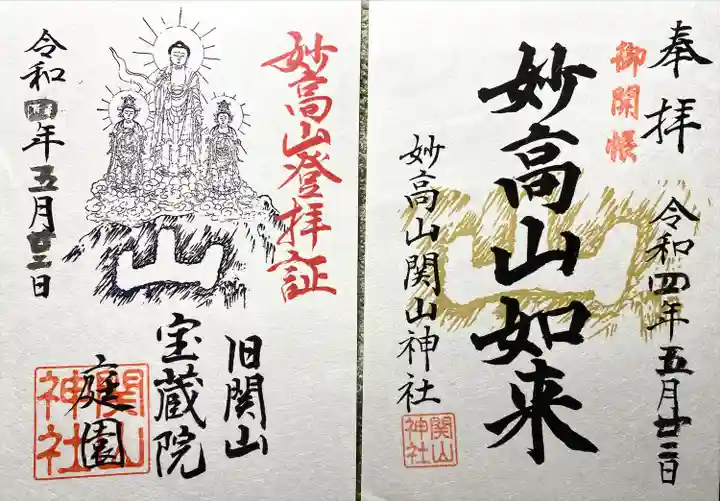 奉拝
御開帳
令和四年五月廿二日
妙高山如来
妙高山関山神社
関山
神社
妙高山登拝証
令和四年五月廿二日
山
旧関山
宝蔵院
庭園
関山
神社